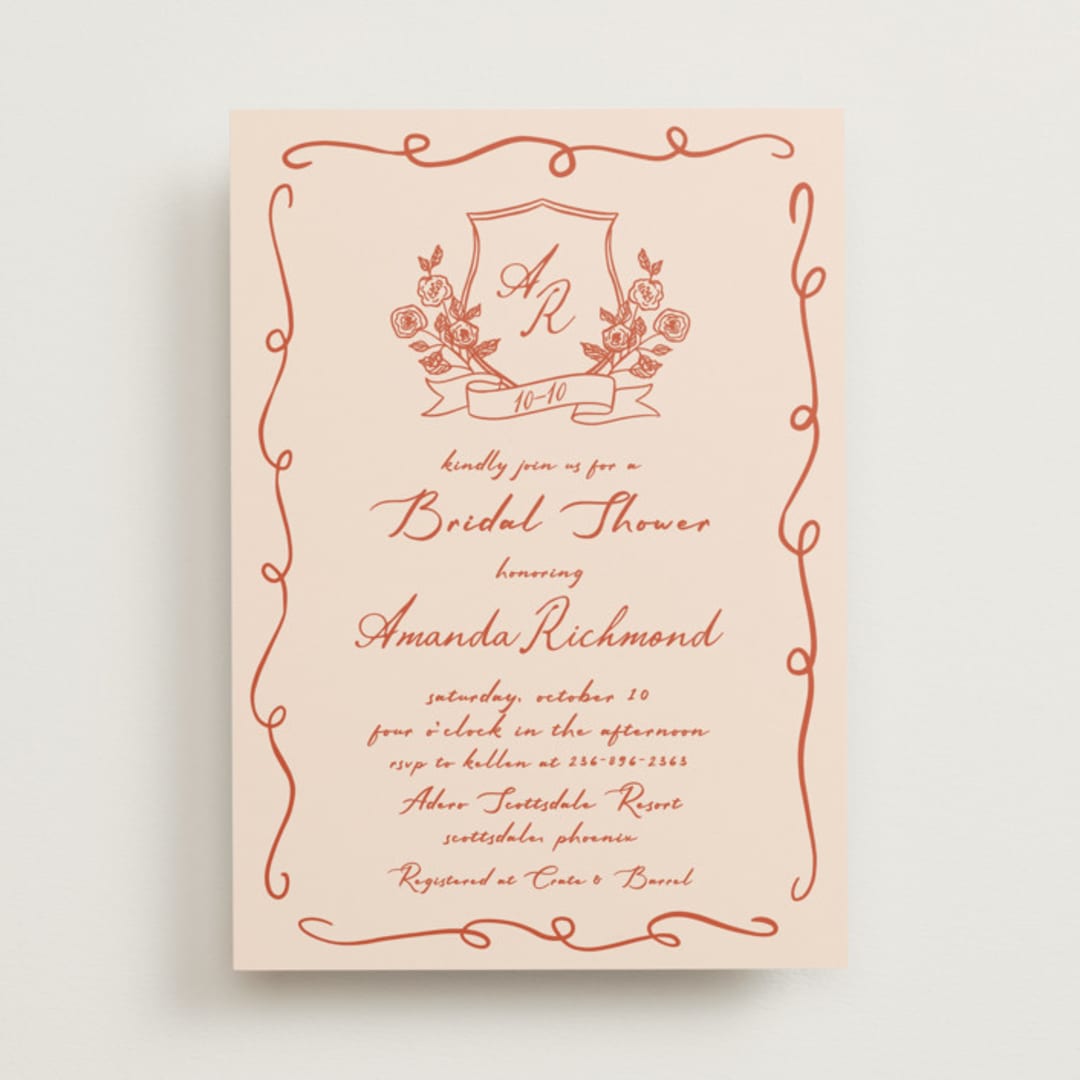 A
R
10-10
kindly join us for a
Bridal Shower
honoring
Amanda Richmond
saturday, october 10
four o'clock in the afternoon
rsvp to kellen at 236-896-2363
Adero Scottsdale Resort
scottsdale, phoenix
Registered at Crate & Barrel